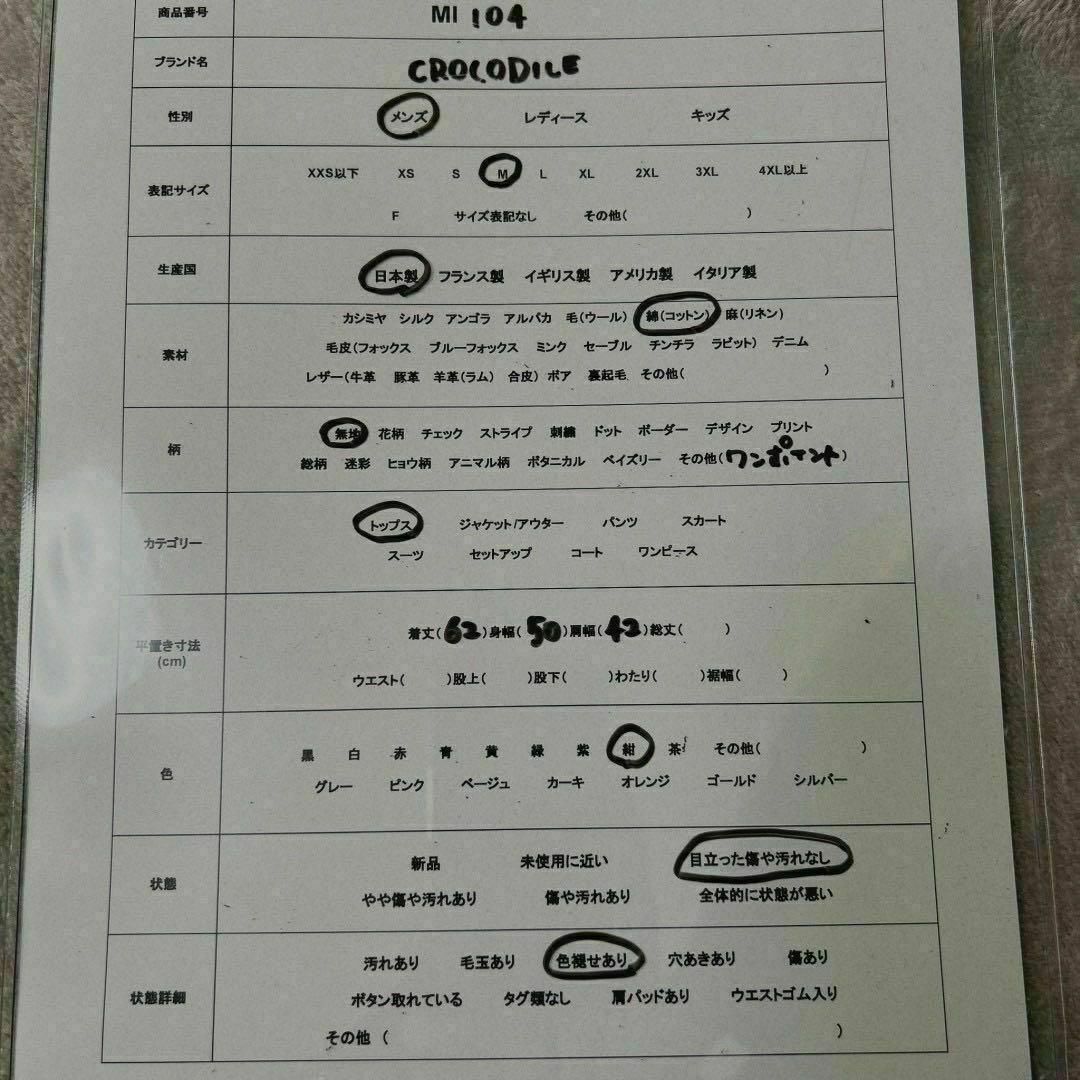 商品番号 MI 104
ブランド名 CROCODILE
性別 メンズ レディース キッズ
XXS以下 XS S M L XL 2XL 3XL 4XL以上
表記サイズ
F サイズ表記なし その他( )
生産国 日本製 フランス製 イギリス製 アメリカ製 イタリア製
カシミヤ シルク アンゴラ アルパカ 毛(ウール) 綿(コットン) 麻(リネン)
素材 毛皮(フォックス ブルーフォックス ミンク セーブル チンチラ ラビット) デニム
レザー(牛革 豚革 羊革(ラム) 合皮) ボア 裏起毛 その他( )
無地 花柄 チェック ストライプ 刺繍 ドット ボーダー デザイン プリント
柄
総柄 迷彩 ヒョウ柄 アニマル柄 ボタニカル ペイズリー その他(ワンポイント)
トップス ジャケット/アウター パンツ スカート
カテゴリー
スーツ セットアップ コート ワンピース
着丈(62)身幅(50)肩幅(42)総丈( )
平置き寸法
(cm)
ウエスト( )股上( )股下( )わたり( )裾幅( )
黒 白 赤 青 黄 緑 紫 紺 茶 その他( )
色
グレー ピンク ベージュ カーキ オレンジ ゴールド シルバー
新品 未使用に近い 目立った傷や汚れなし
状態
やや傷や汚れあり 傷や汚れあり 全体的に状態が悪い
汚れあり 毛玉あり 色褪せあり 穴あきあり 傷あり
状態詳細 ボタン取れている タグ類なし 肩パッドあり ウエストゴム入り
その他 ( )